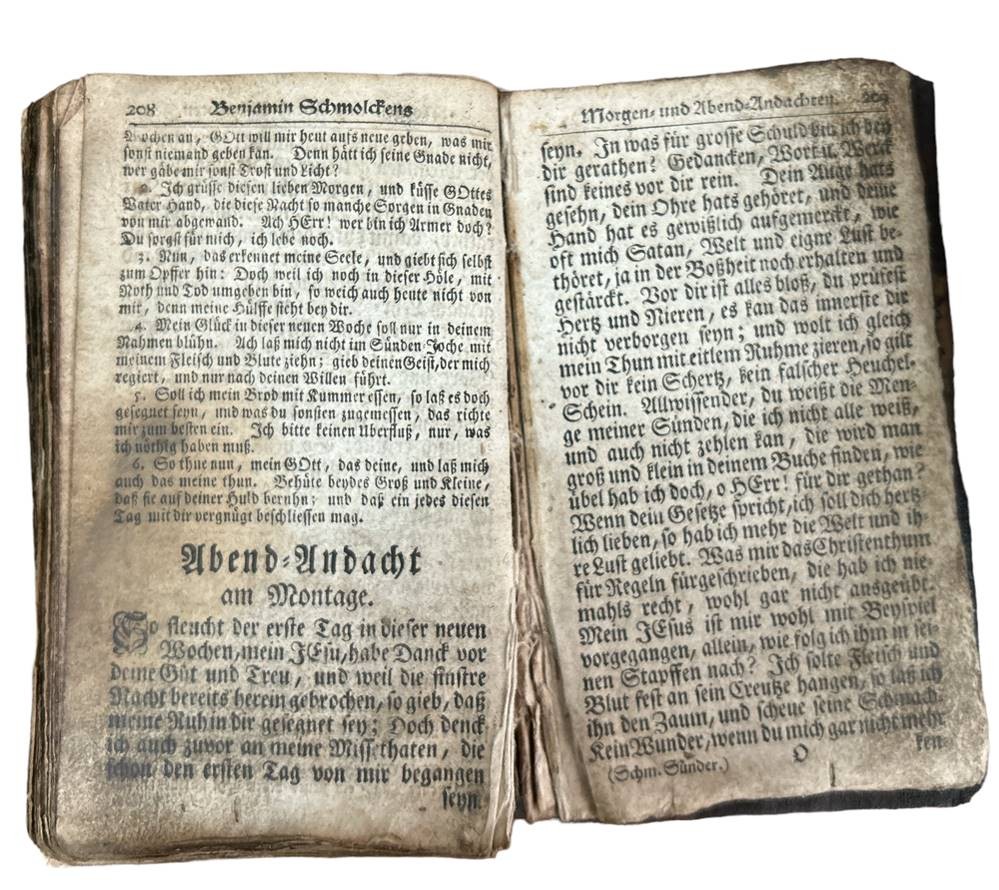 208 Benjamin Schmolckens
Wochen an, GOtt will mir heut aufs neue geben, was mir
sonst niemand geben kan. Denn hätt ich seine Gnade nicht,
wer gäbe mir sonst Trost und Licht?
2. Ich grüsse diesen lieben Morgen, und küsse GOttes
Vater Hand, die diese Nacht so manche Sorgen in Gnaden
von mir abgewand. Ach HErr! wer bin ich Armer doch?
Du sorgst für mich, ich lebe noch.
3. Nun, das erkennet meine Seele, und giebt sich selbst
zum Opffer hin: Doch weil ich noch in dieser Höle, mit
Noth und Tod umgeben bin, so weich auch heute nicht von
mir, denn meine Hülffe steht bey dir.
4. Mein Glück in dieser neuen Woche soll nur in deinem
Nahmen blühn. Ach laß mich nicht im Sünden-Joche mit
meinem Fleisch und Blute ziehn; gieb deinen Geist, der mich
regiert, und nur nach deinen Willen führt.
5. Soll ich mein Brod mit Kummer essen, so laß es doch
gesegnet seyn, und was du sonsten zugemessen, das richte
mir zum besten ein. Ich bitte keinen Uberfluß, nur, was
ich nöthig haben muß.
6. So thue nun, mein GOtt, das deine, und laß mich
auch das meine thun. Behüte beydes Groß und Kleine,
daß sie auf deiner Huld beruhn; und daß ein jedes diesen
Tag mit dir vergnügt beschliessen mag.
Abend-Andacht
am Montage.
So fleucht der erste Tag in dieser neuen
Wochen, mein JEsu, habe Danck vor
deine Güt und Treu, und weil die finstre
Nacht bereits herein gebrochen, so gieb, daß
meine Ruh in dir gesegnet sey; Doch denck
ich auch zuvor an meine Missethaten, die
schon den ersten Tag von mir begangen
seyn.
Morgen- und Abend-Andachten. 209
seyn. In was für grosse Schuld bin ich bey
dir gerathen! Gedancken, Wort u. Werck
sind keines vor dir rein. Dein Auge hats
gesehn, dein Ohre hats gehöret, und deine
Hand hat es gewißlich aufgemerckt, wie
oft mich Satan, Welt und eigne Lust be-
thöret, ja in der Boßheit noch erhalten und
gestärckt. Vor dir ist alles bloß, du prüfest
Hertz und Nieren, es kan das innerste dir
nicht verborgen seyn; und wolt ich gleich
mein Thun mit eitlem Ruhme zieren, so gilt
vor dir kein Schertz, kein falscher Heuchel-
Schein. Allwissender, du weißt die Men-
ge meiner Sünden, die ich nicht alle weiß,
und auch nicht zehlen kan, die wird man
groß und klein in deinem Buche finden, wie
übel hab ich doch, o HErr! für dir gethan?
Wenn dein Gesetze spricht, ich soll dich hertz-
lich lieben, so hab ich mehr die Welt und ih-
re Lust geliebt. Was mir das Christenthum
für Regeln fürgeschrieben, die hab ich nie-
mahls recht, wohl gar nicht ausgeübt.
Mein JEsus ist mir wohl mit Beyspiel
vorgegangen, allein, wie folg ich ihm in sei-
nen Stapffen nach? Ich solte Fleisch und
Blut fest an sein Creutze hangen, so laß ich
ihn den Zaum, und scheue seine Schmach.
Kein Wunder, wenn du mich gar nicht mehr
(Schm. Sünder.) O ken-